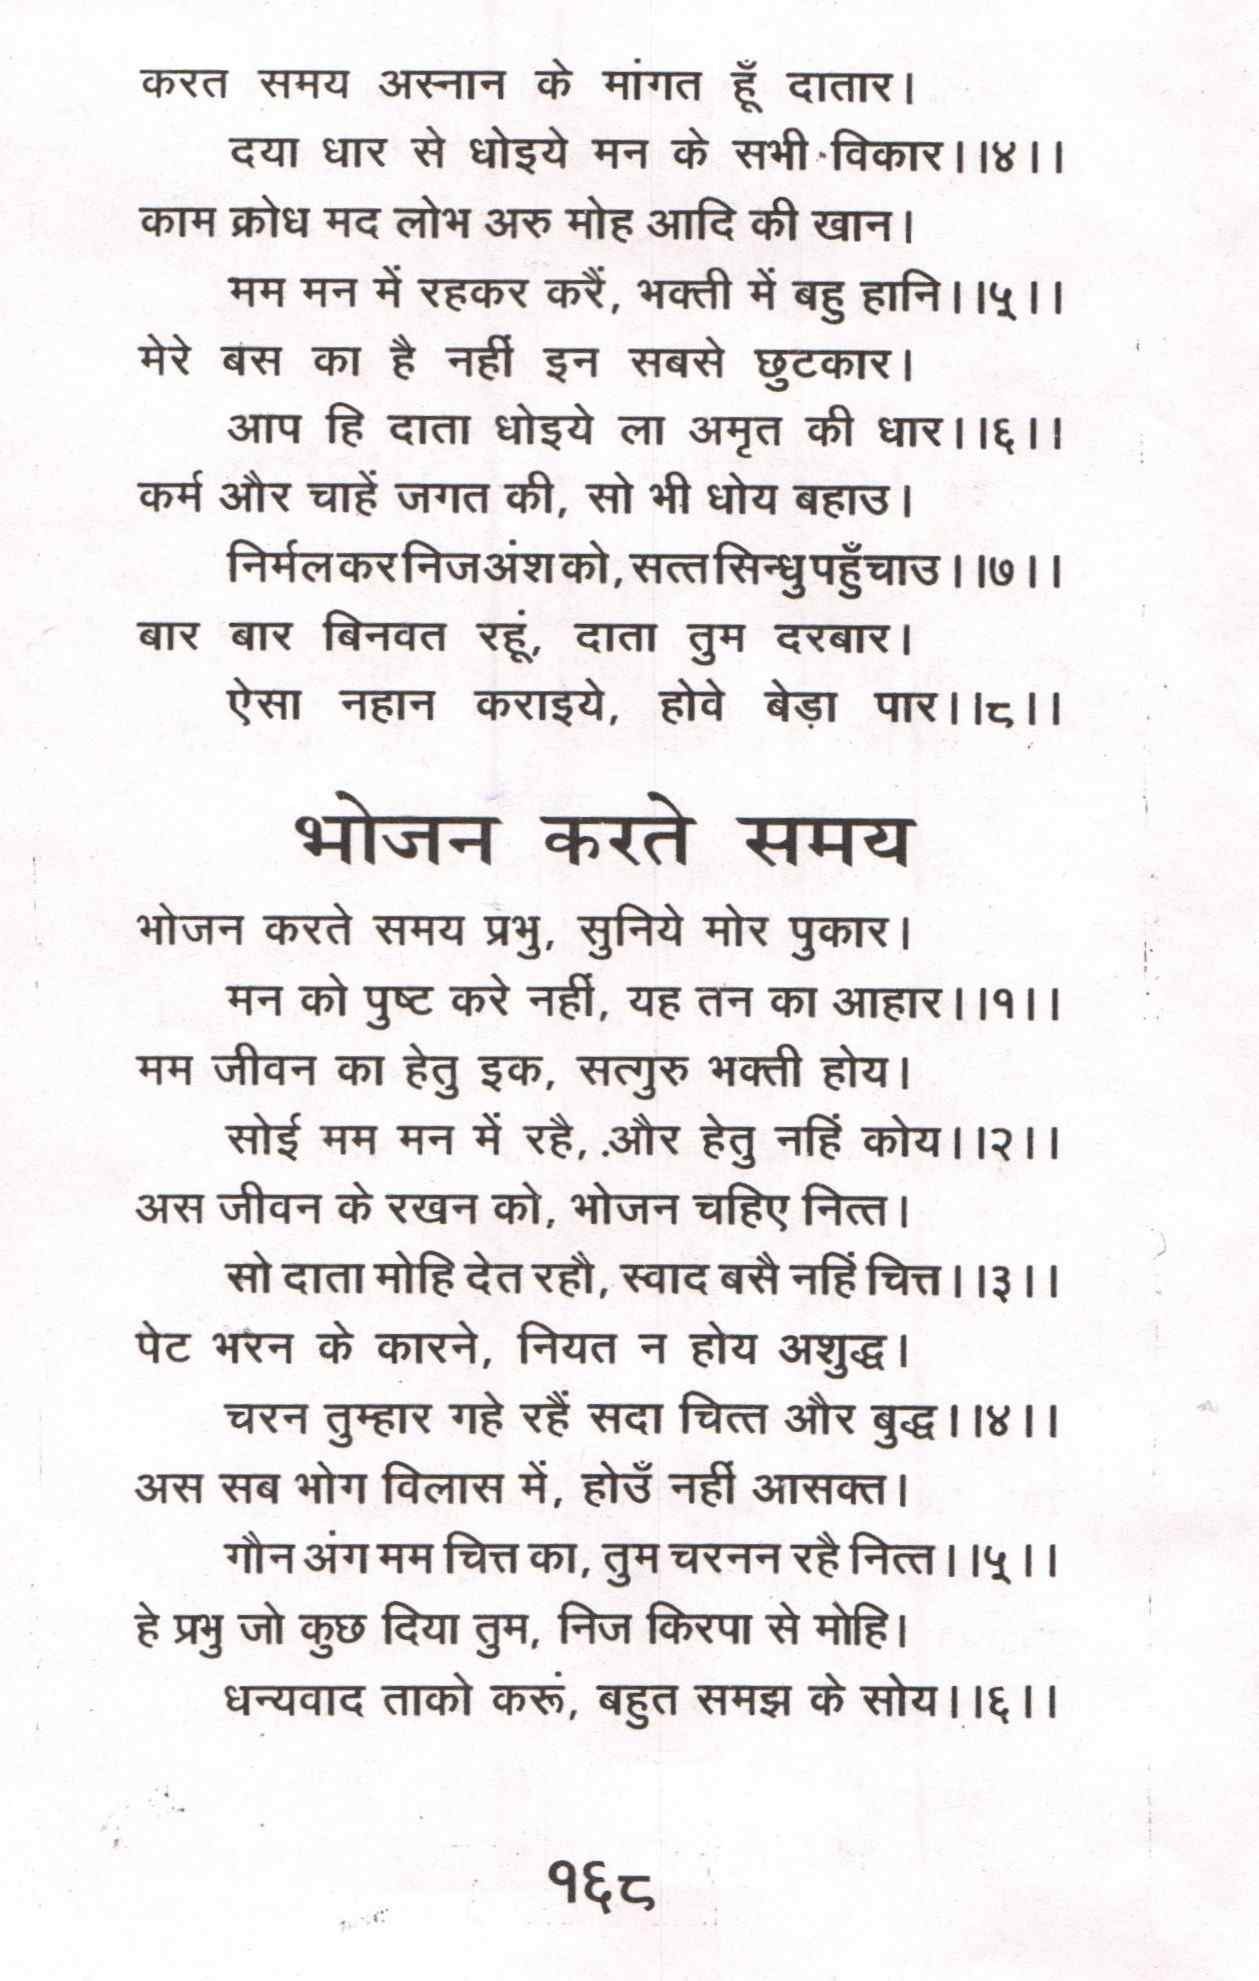 करत समय अस्नान के मांगत हूँ दातार।
दया धार से धोइये मन के सभी विकार।।४।।
काम क्रोध मद लोभ अरु मोह आदि की खान।
मम मन में रहकर करैं, भक्ती में बहु हानि।।५।।
मेरे बस का है नहीं इन सबसे छुटकार।
आप हि दाता धोइये ला अमृत की धार।।६।।
कर्म और चाहें जगत की, सो भी धोय बहाउ।
निर्मल कर निज अंश को, सत्त सिन्धु पहुँचाउ।।७।।
बार बार बिनवत रहूं, दाता तुम दरबार।
ऐसा नहान कराइये, होवे बेड़ा पार।।८।।
भोजन करते समय
भोजन करते समय प्रभु, सुनिये मोर पुकार।
मन को पुष्ट करे नहीं, यह तन का आहार।।१।।
मम जीवन का हेतु इक, सत्गुरु भक्ती होय।
सोई मम मन में रहै, और हेतु नहिं कोय।।२।।
अस जीवन के रखन को, भोजन चहिए नित्त।
सो दाता मोहि देत रहौ, स्वाद बसै नहिं चित्त।।३।।
पेट भरन के कारने, नियत न होय अशुद्ध।
चरन तुम्हार गहे रहैं सदा चित्त और बुद्ध।।४।।
अस सब भोग विलास में, होउँ नहीं आसक्त।
गौन अंग मम चित्त का, तुम चरनन रहै नित्त।।५।।
हे प्रभु जो कुछ दिया तुम, निज किरपा से मोहि।
धन्यवाद ताको करूं, बहुत समझ के सोय।।६।।
१६८